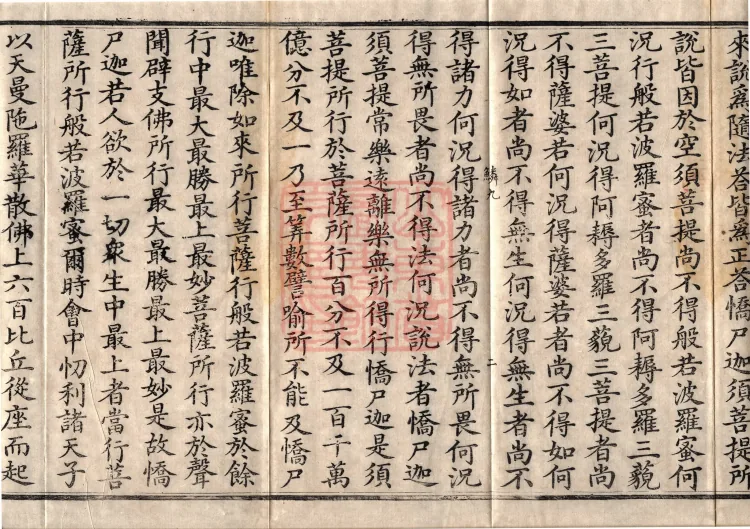 來說爲隨法荅皆爲正荅憍尸迦須菩提所
說皆因於空須菩提尚不得般若波羅蜜何
況行般若波羅蜜者尚不得阿耨多羅三藐
三菩提何況得阿耨多羅三藐三菩提者尚
不得薩婆若何況得薩婆若者尚不得如何
況得如者尚不得無生何況得無生者尚不
鱗九
二
得諸力何況得諸力者尚不得無所畏何況
得無所畏者尚不得法何況說法者憍尸迦
須菩提常樂遠離樂無所得行憍尸迦是須
菩提所行於菩薩所行百分不及一百千萬
億分不及一乃至筭數譬喻所不能及憍尸
迦唯除如來所行菩薩行般若波羅蜜於餘
行中最大最勝最上最妙菩薩所行亦於聲
聞辟支佛所行最大最勝最上最妙是故憍
尸迦若人欲於一切衆生中最上者當行菩
薩所行般若波羅蜜爾時會中忉利諸天子
以天曼陁羅華散佛上六百比丘從座而起